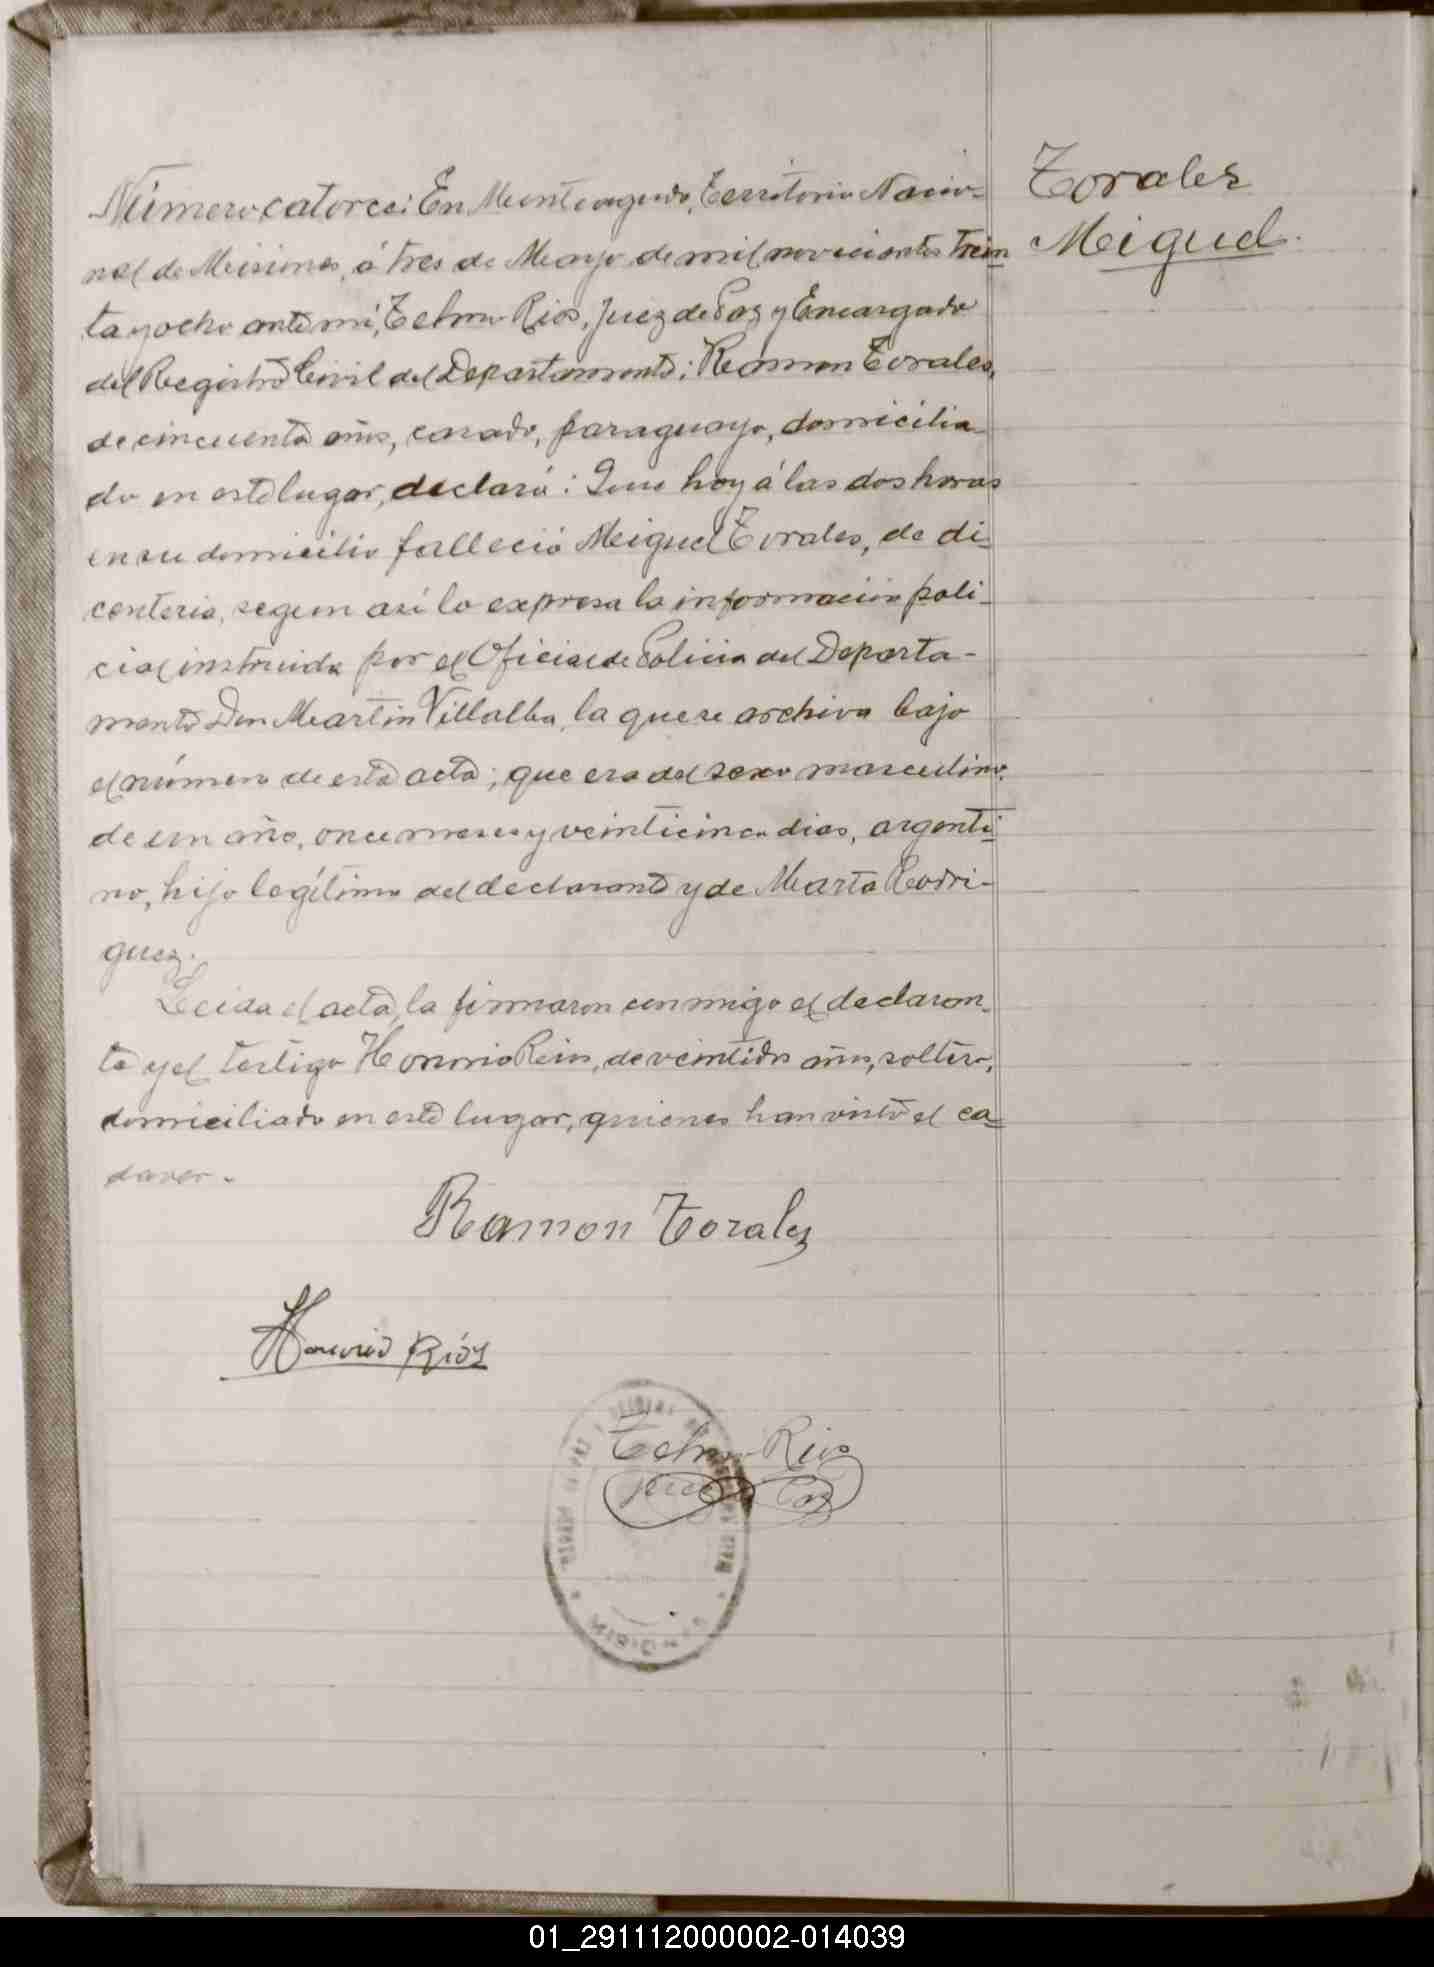 Torales
Miguel.
Número catorce: En Monteagudo, Territorio Nacio-
nal de Misiones, á tres de Mayo de mil novecientos trein
ta y ocho ante mi, Telmo Rios, Juez de Paz y Encargado
del Registro Civil del Departamento; Ramon Torales,
de cincuenta años, casado, paraguayo, domicilia-
do en este lugar, declaró: Que hoy á las dos horas
en su domicilio falleció Miguel Torales, de di-
centeria, segun así lo expresa la información poli-
cial instruida por el Oficial de Policia del Departa-
mento Don Martin Villalba, la que se archiva bajo
el número de esta acta; que era del sexo masculino,
de un año, once meses y veinticinco dias, argenti
no, hijo legítimo del declarante y de Marta Rodri-
guez.
Leida el acta, la firmaron conmigo el declaran-
te y el testigo Honorio Rios, de veintidos años, soltero,
domiciliado en este lugar, quienes han visto el ca-
daver.-
Ramon Torales
Honorio Ríos
Telmo Rios
Juez Paz
01_291112000002-014039